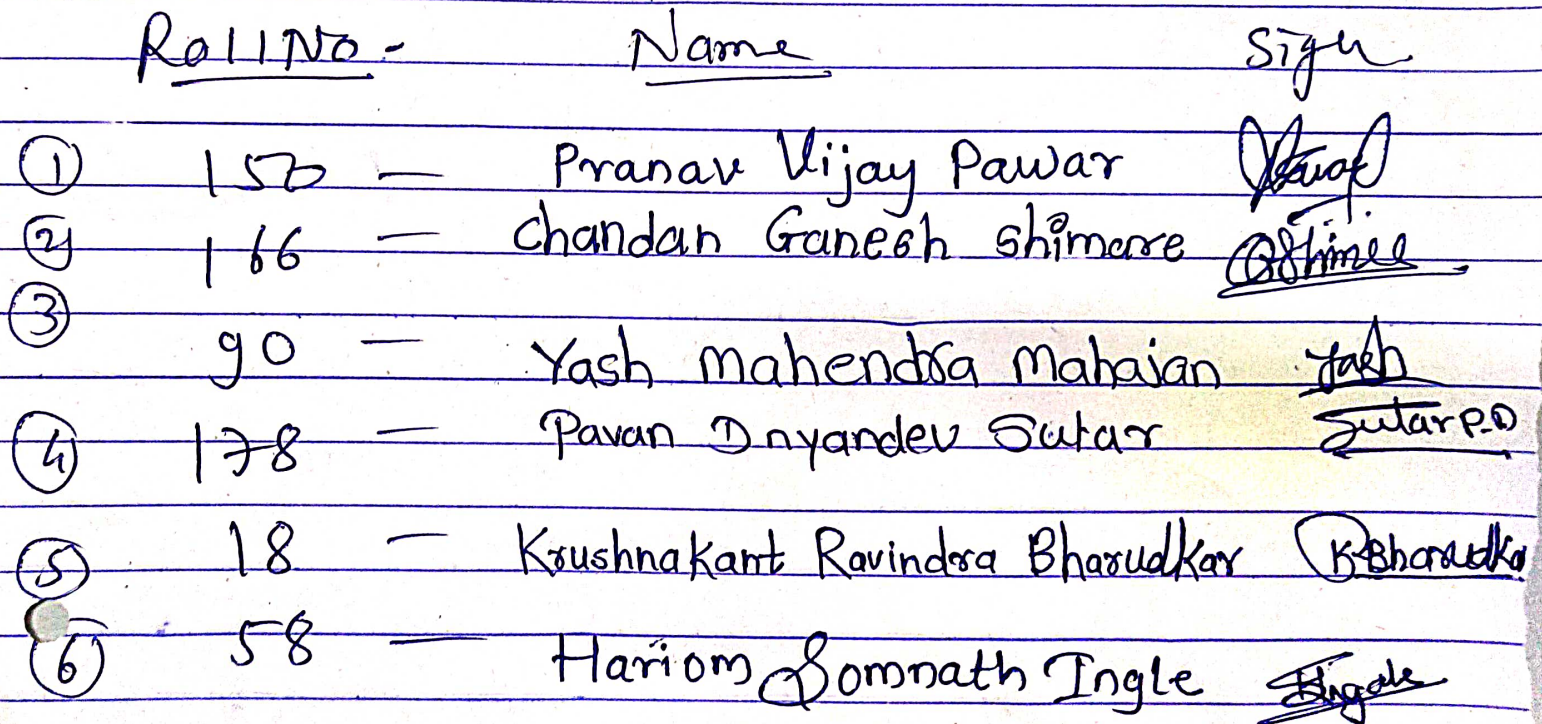 Roll No - Name Sign
① 150 - Pranav Vijay Pawar
② 166 - Chandan Ganesh Shimare
③ 90 - Yash Mahendra Mahajan Yash
④ 178 - Pavan Dnyandev Sutar Sutar P.D
⑤ 18 - Krushnakant Ravindra Bharudkar K Bharudka
⑥ 58 - Hariom Somnath Ingle